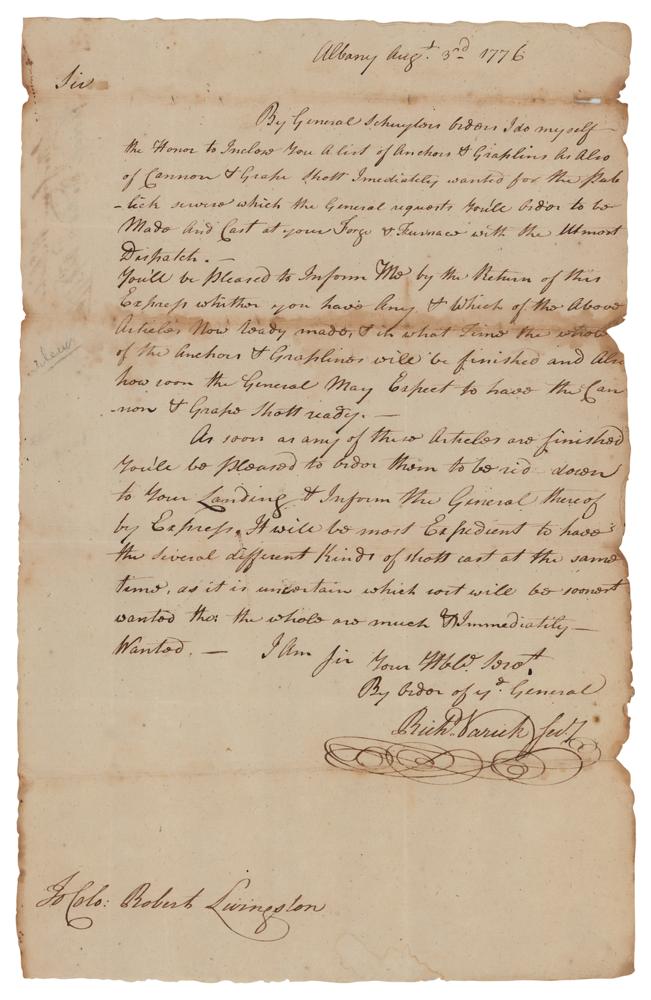 Albany Augt. 3rd 1776
Sir
By General Schuylers orders I do myself
the Honor to Inclose You A list of Anchors & Graplins As Also
of Cannon & Grape Shott Imediately wanted for the Pub
-lick service which the General requests You'll order to be
Made And Cast at your Forge & Furnace with the Utmost
Dispatch. —
You'll be Pleased to Inform Me by the Return of this
Express whither you have Any & Which of the Above
Articles Now ready made, & in what Time the whole
of the Anchors & Graplines will be finished and Also
how soon the General May Expect to have the Can
-non & Grape Shott ready. —
As soon as any of these Articles are finished
You'll be pleased to order them to be rid down
to Your Landing & Inform the General thereof
by Express. It will be most Expedient to have
the several different Kinds of shott cast at the same
time, as it is uncertain which sort will be soonest
wanted tho: the whole are much & Immediatily —
Wanted. — I Am Sir Your Hble. Servt.
By order of ye. General
Richd. Varick Secy
To Colo: Robert Livingston